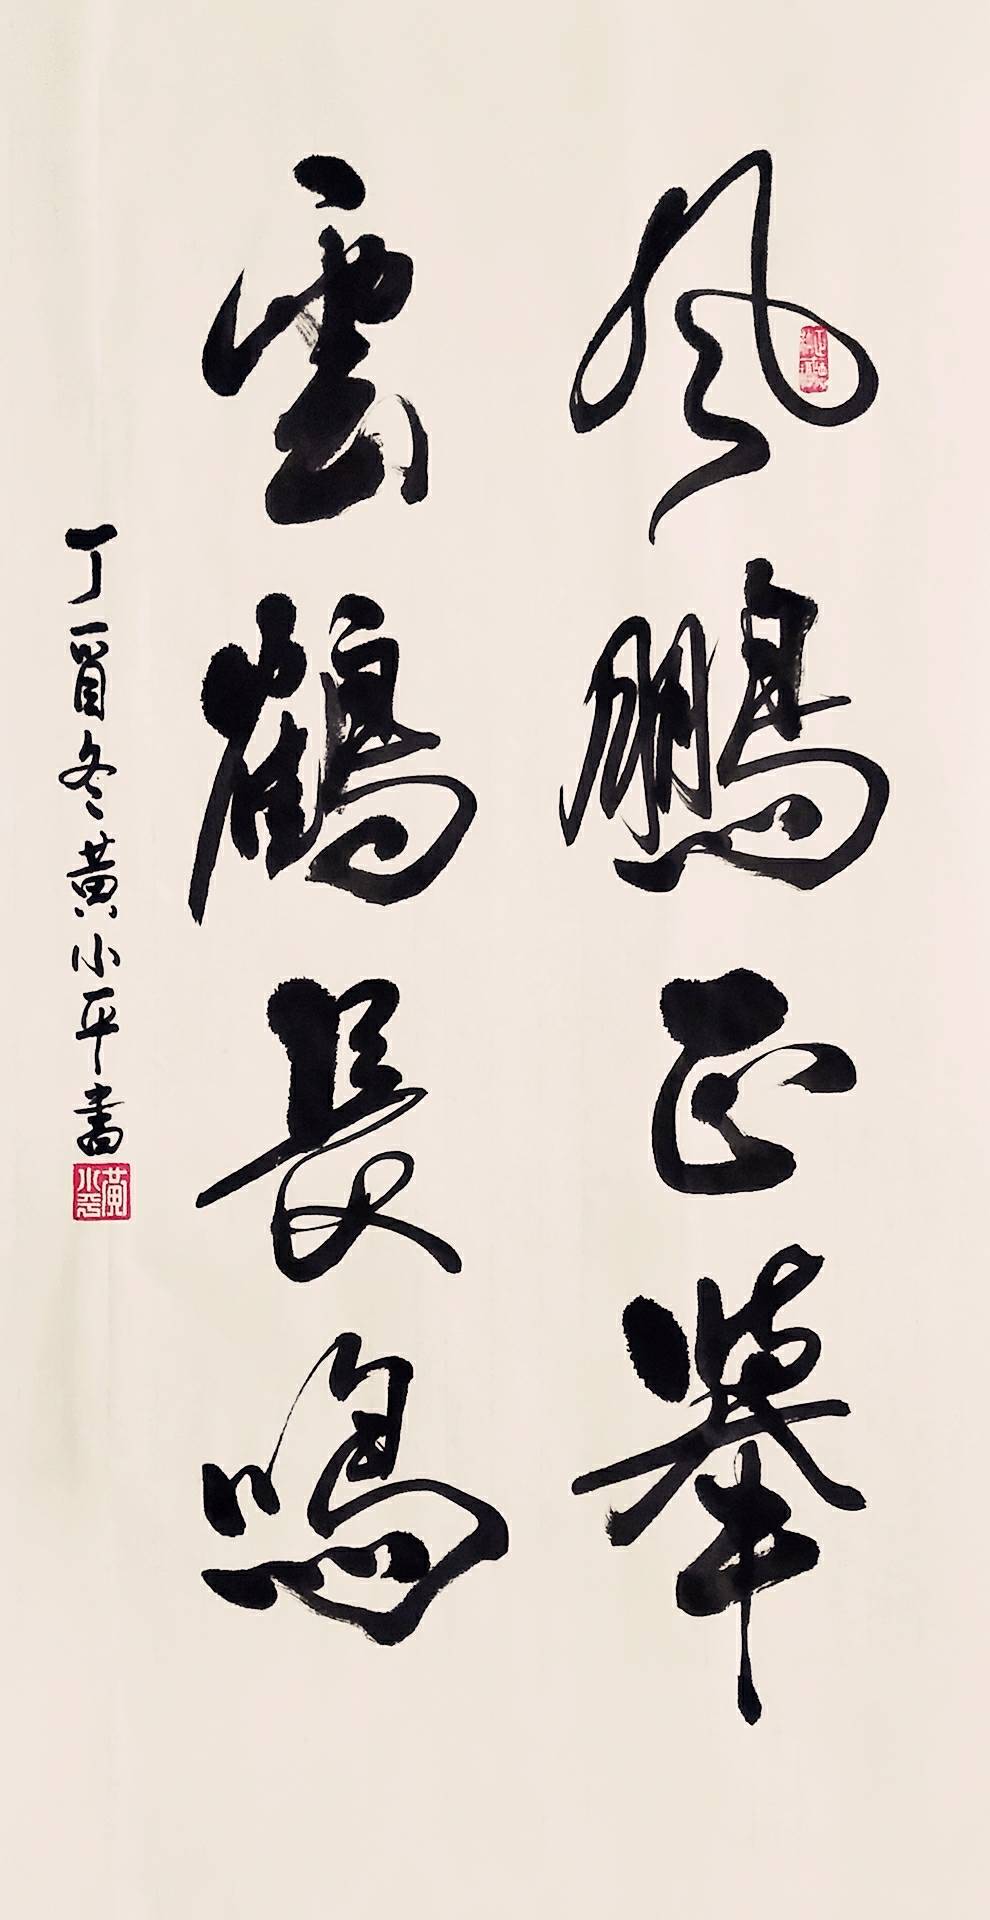 風鵬正舉
雲鶴長鳴
丁酉冬黃小平書
黃小平